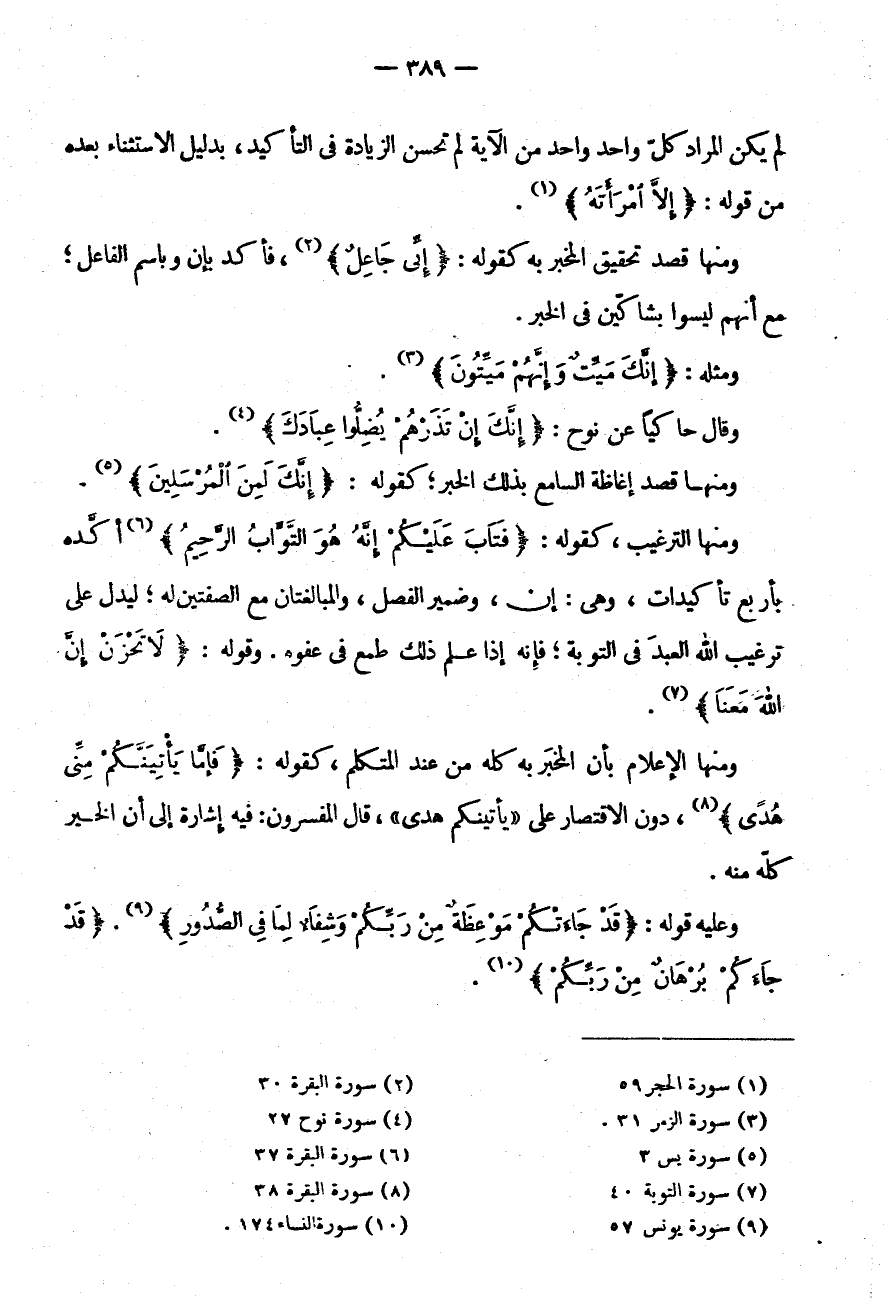 — ٣٨٩ —
لم يكن المراد كلّ واحد واحد من الآية لم تحسن الزيادة فى التأكيد، بدليل الاستثناء بعده
من قوله : ﴿ إِلاَّ ٱمْرَأَتَهُ ﴾ (١) .
ومنها قصد تحقيق المخبر به كقوله : ﴿ إِنِّى جَاعِلٌ ﴾ (٢) ، فأكد بإن وباسم الفاعل ؛
مع أنهم ليسوا بشاكّين فى الخبر .
ومثله : ﴿ إِنَّكَ مَيِّتٌ وَإِنَّهُمْ مَيِّتُونَ ﴾ (٣) .
وقال حاكياً عن نوح : ﴿ إِنَّكَ إِنْ تَذَرْهُمْ يُضِلُّوا عِبَادَكَ ﴾ (٤) .
ومنها قصد إغاظة السامع بذلك الخبر؛ كقوله : ﴿ إِنَّكَ لَمِنَ ٱلْمُرْسَلِينَ ﴾ (٥) .
ومنها الترغيب ، كقوله : ﴿ فَتَابَ عَلَيْكُمْ إِنَّهُ هُوَ التَّوَّابُ الرَّحِيمُ ﴾ (٦) أكَّده
بأربع تأكيدات ، وهى : إن ، وضمير الفصل ، والمبالغتان مع الصفتين له ؛ ليدل على
ترغيب الله العبدَ فى التوبة ؛ فإنه إذا علم ذلك طمع فى عفوه . وقوله : ﴿ لَا تَحْزَنْ إِنَّ
اللهَ مَعَنَا ﴾ (٧) .
ومنها الإعلام بأن المخبَر به كله من عند المتكلم ، كقوله : ﴿ فَإِمَّا يَأْتِيَنَّكُمْ مِنِّى
هُدًى ﴾ (٨) ، دون الاقتصار على «يأتينكم هدى» ، قال المفسرون: فيه إشارة إلى أن الخير
كلّه منه .
وعليه قوله : ﴿ قَدْ جَاءَتْكُمْ مَوْعِظَةٌ مِنْ رَبِّكُمْ وَشِفَاءٌ لِمَا فِى الصُّدُورِ ﴾ (٩) . ﴿ قَدْ
جَاءَكُمْ بُرْهَانٌ مِنْ رَبِّكُمْ ﴾ (١٠) .
(١) سورة الحجر ٥٩
(٢) سورة البقرة ٣٠
(٣) سورة الزمر ٣١ .
(٤) سورة نوح ٢٧
(٥) سورة يس ٣
(٦) سورة البقرة ٣٧
(٧) سورة التوبة ٤٠
(٨) سورة البقرة ٣٨
(٩) سورة يونس ٥٧
(١٠) سورة النساء ١٧٤ .